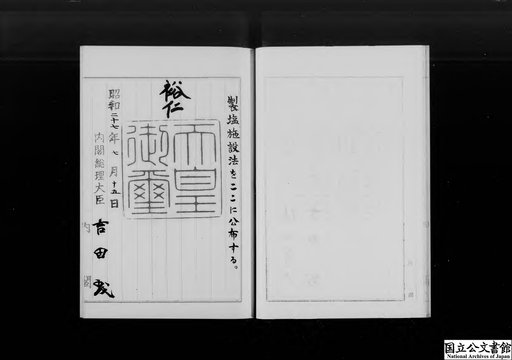 製塩施設法をここに公布する。
裕仁
天皇
御璽
昭和二十七年七月十五日
内閣総理大臣 吉田茂
内閣
国立公文書館
National Archives of Japan